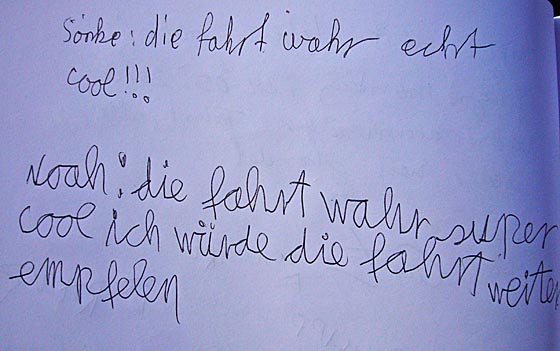 Sönke: die fahrt wahr echt
cool!!!
Noah: die fahrt wahr super
cool ich würde die fahrt weiter
empfelen